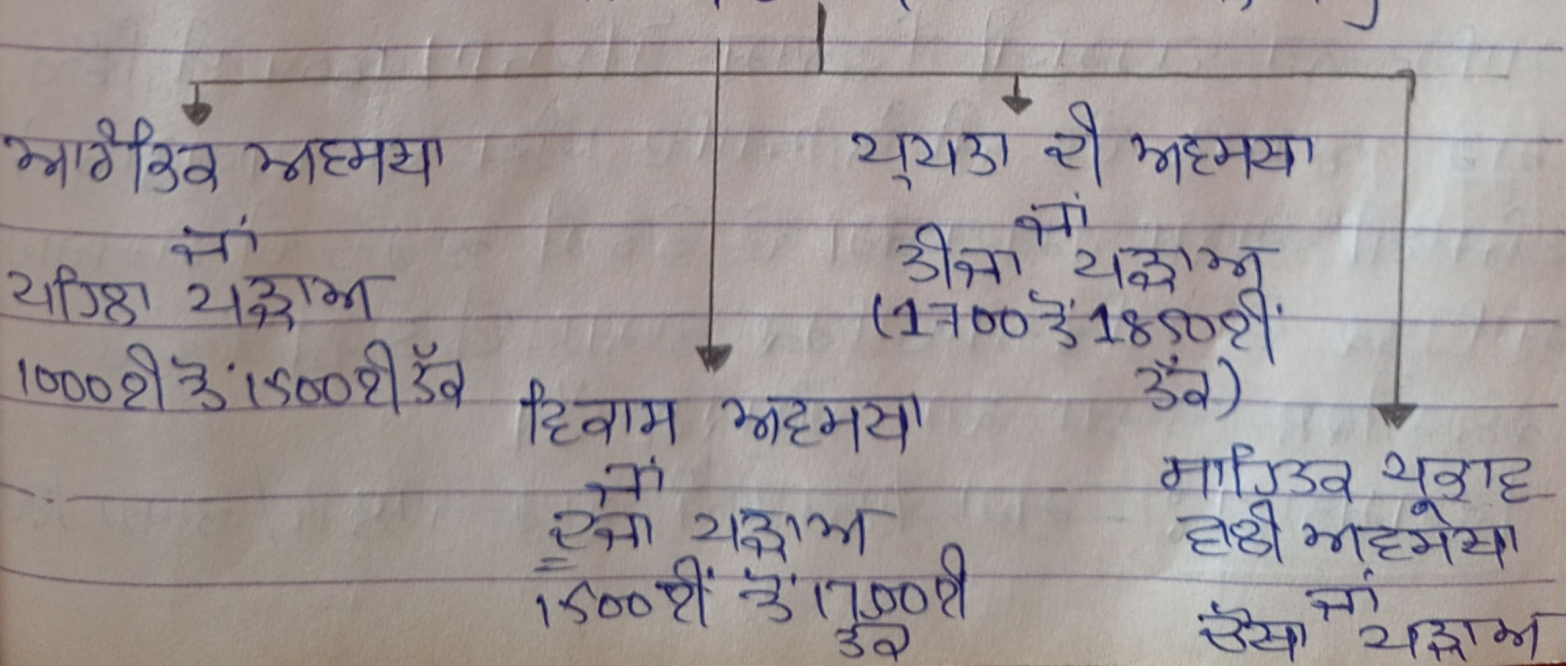 ਆਰੰਭਿਕ ਅਵਸਥਾ
ਜਾਂ
ਪਹਿਲਾ ਪੜਾਅ
1000ਈ ਤੋਂ 1500ਈ ਤੱਕ
ਵਿਕਾਸ ਅਵਸਥਾ
ਜਾਂ
ਦੂਜਾ ਪੜਾਅ
1500ਈਂ ਤੋਂ 1700ਈ
ਤਕ
ਪ੍ਰਪਤਾ ਦੀ ਅਵਸਥਾ
ਜਾਂ
ਤੀਜਾ ਪੜਾਅ
(1700 ਤੋਂ 1850ਈਂ
ਤੱਕ)
ਸਾਹਿਤਕ ਪ੍ਰਭਾਵ
ਵਾਲੀ ਅਵਸਥਾ
ਜਾਂ
ਚੌਥਾ ਪੜਾਅ